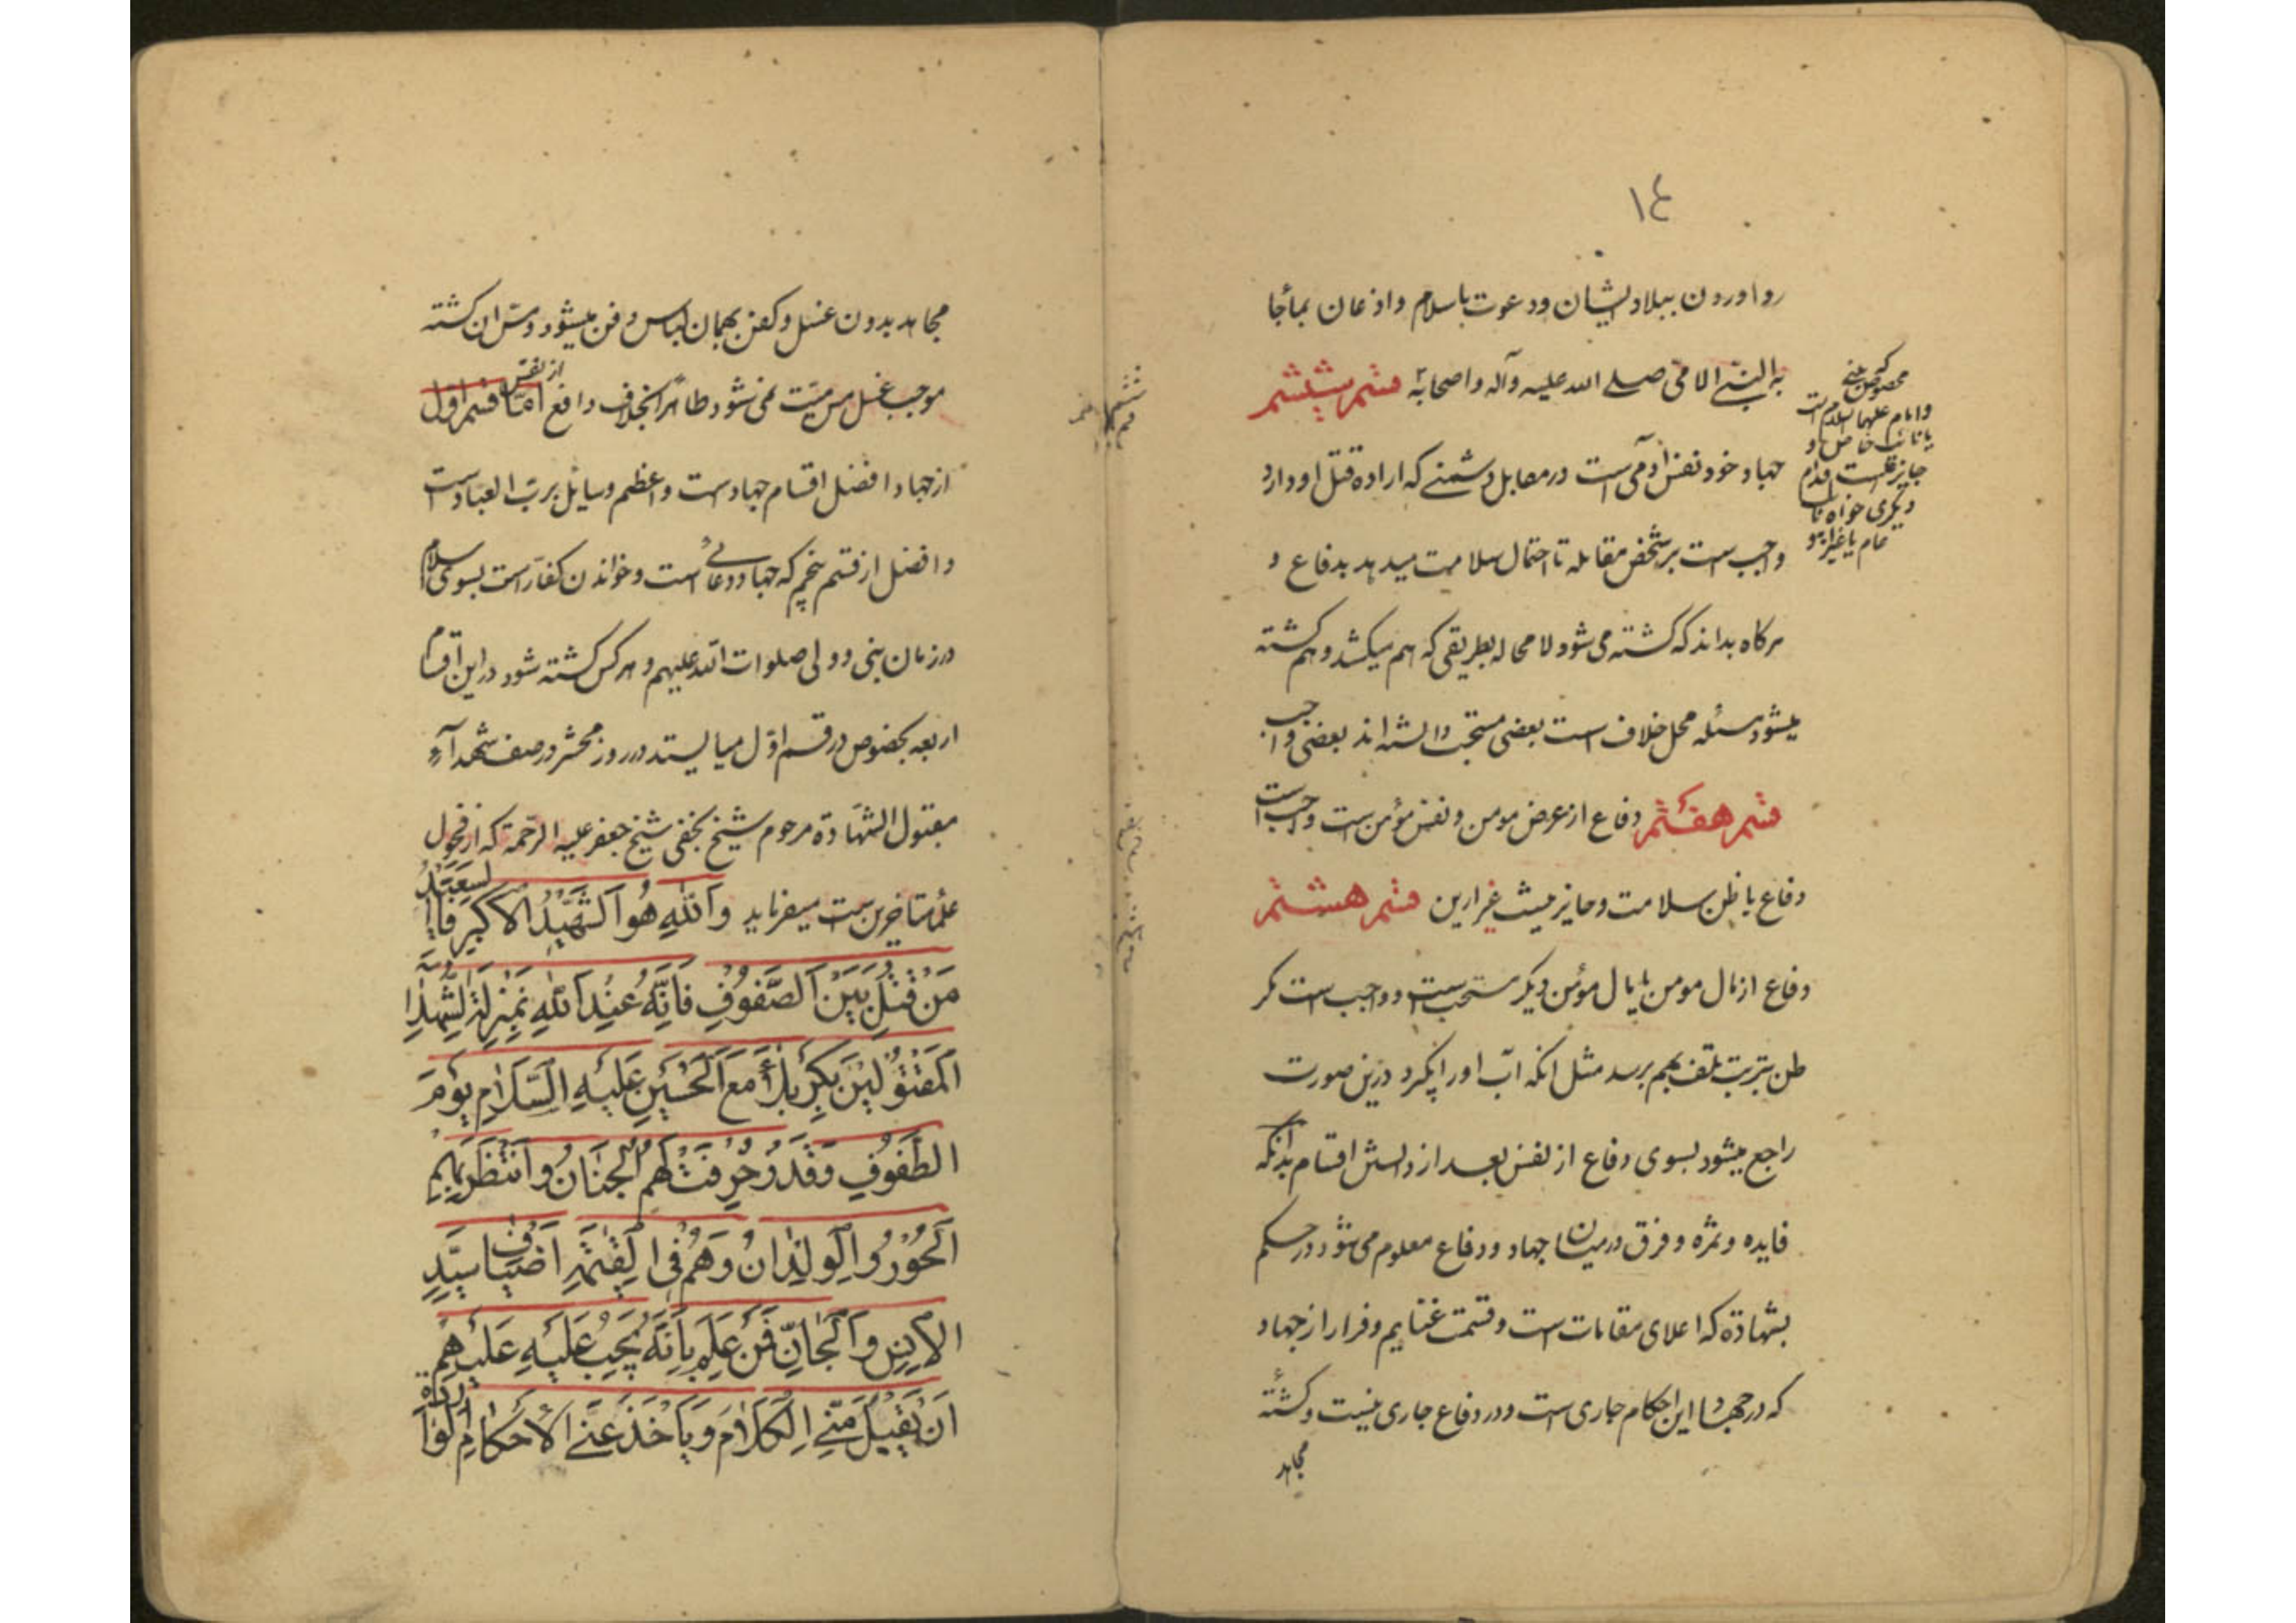 ١٤
رو اوردن ببلاد ایشان ودعوت باسلام واذعان بماجا
به النبی الامی صلے الله علیه وآله واصحابه قسم ششم
جهاد خود نفس آدمی است در مقابل دشمنے که اراده قتل او دارد
واجب است بر شخص مقابله تا احتمال سلامت میدهد بدفاع و
هرکاه بداند که کشته می شود لا محاله بطریقی که هم میکشد و هم کشته
میشود مسئله محل خلاف است بعضی مستحب دانسته اند بعضی واجب
قسم هفتم دفاع از عرض مومن و نفس مؤمن است واجب است
دفاع با ظن سلامت وجایز نیست غیر ازین قسم هشتم
دفاع از مال مومن یا مال مؤمن دیکر مستحب است و واجب است مکر
ظن بترتب تلف بهم برسد مثل انکه آب او را بکیرد درین صورت
راجع میشود بسوی دفاع از نفس بعد از دانستن اقسام بدانکه
فایده وثمره وفرق در میان جهاد ودفاع معلوم می شود در حکم
بشهادة که اعلای مقامات است وقسمت غنایم وفرار از جهاد
که در جهاد این احکام جاری است ودر دفاع جاری نیست وکشته
مجاهد
مخصوص نبی
وامام علیهما السلام است
یا نائب خاص و
جایز نیست اقدام
دیکری خواه نائب
عام یا غیر او
مجاهد بدون غسل وکفن بهمان لباس دفن میشود ومس ان کشته
موجب غسل مس میت نمی شود ظاهراً بخلاف دافع از نفس امّا قسم اوّل
از جهاد افضل اقسام جهاد است واعظم وسایل بربّ العباد است
وافضل از قسم پنجم که جهاد دعائے است وخواندن کفار است بسوی اسلام
در زمان نبی و ولی صلوات الله علیهم وهر کس کشته شود در این اقسام
اربعه بخصوص در قسم اوّل میایستد در روز محشر در صف شهدآء
مقبول الشهادة مرحوم شیخ نجفی شیخ جعفر علیه الرحمة که از فحول
علماء متأخرین است میفرماید وَاللهِ هُوَ السَّعیدُ الشَّهیدُ الاَکبر فَاِنَّ
مَن قُتِلَ بَینَ الصُّفُوفِ فَاِنَّهُ عِندَ اللهِ بِمَنزِلَةِ الشُّهَدٰاءِ
المَقتُولینَ بِکَربَلاٰءَ مَعَ الحُسَینِ عَلَیهِ السَّلامِ یَومَ
الطُّفُوفِ وَقَد زُخرِفَت لَهُمُ الجِنٰانُ وانتَظَرَ بِهِمِ
الحُورُ والوِلدٰانُ وَهُم فِی القِیٰمَةِ اَضیٰاف سَیِّدِ
الاِنسِ وَالجٰانِّ فَمَن عَلِمَ بِاَنَّهُ یَجِبُ عَلَیهِ عَلَیهِم
اَن یَقبَلَ مِنّی الکَلاٰمَ وَیَأخُذَ عَنّی الاَحکٰامَ